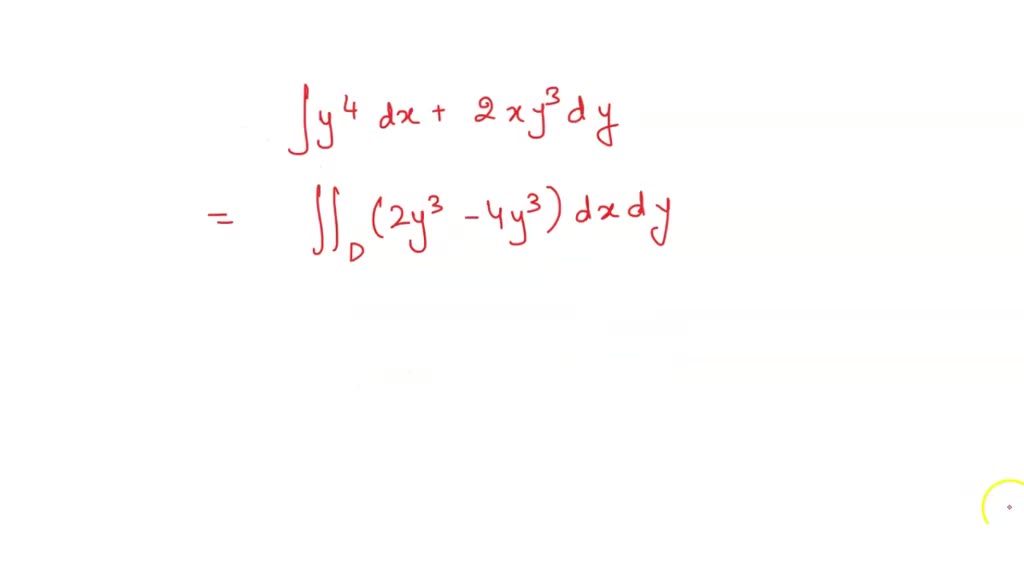 ∫y⁴ dx + 2xy³dy
= ∬_D (2y³ - 4y³) dx dy